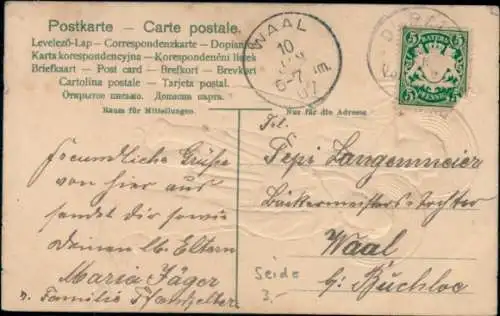 Postkarte — Carte postale.
Levelező-Lap — Correspondenzkarte — Dopisnice
Karta korespondencyjna — Korespondenční lístek
Briefkaart — Post card — Brefkort — Brevkort
Cartolina postale — Tarjeta postal.
Открытое письмо. Дописна карта.
Raum für Mitteilungen.
Nur für die Adresse
WAAL
10
6-7 m.
07
5 BAYERN 5
PFENNIG
Freundliche Grüße
von hier aus
sendet dir sowie
deinen lb. Eltern
Maria Jäger
u. Familie
Frl.
Pepi Langenmeier
Bäckermeisterstochter
Waal
b/ Buchloe
Seide
3.-